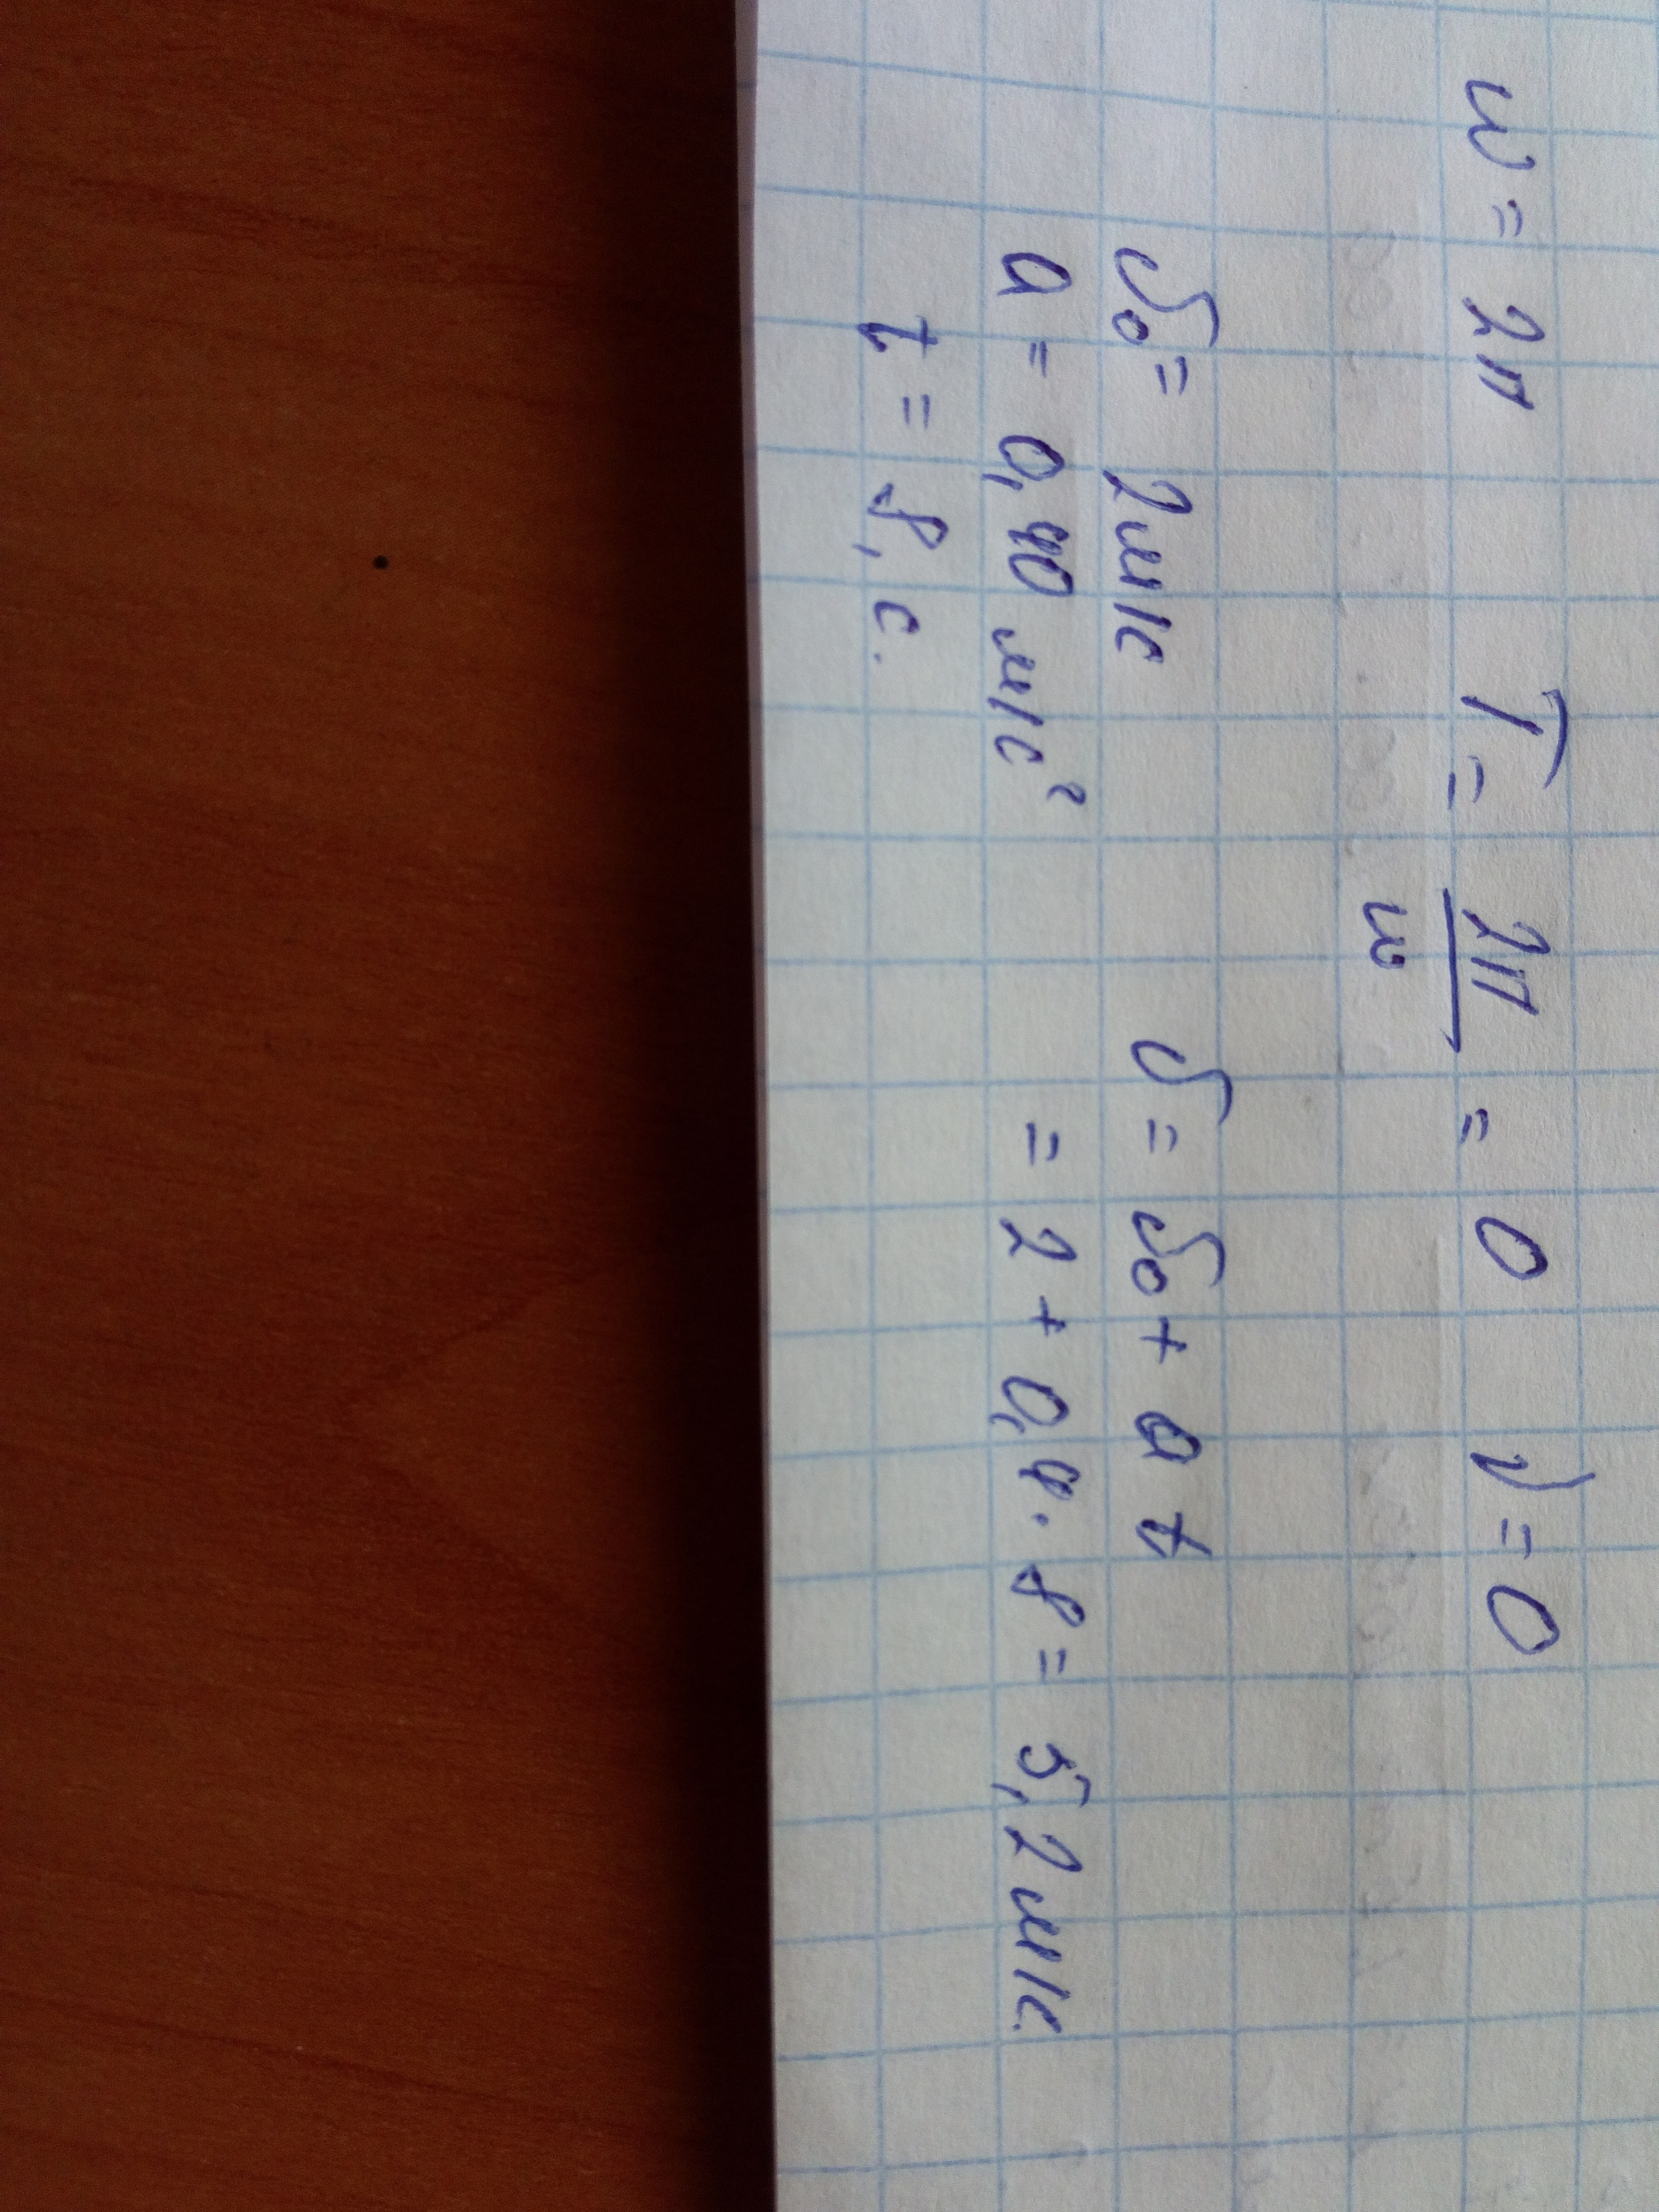 ω = 2π T = 2π/ω = 0 ν = 0
υ₀ = 2 м/с υ = υ₀ + a t
a = 0,40 м/с² = 2 + 0,4 · 8 = 5,2 м/с.
t = 8, с.